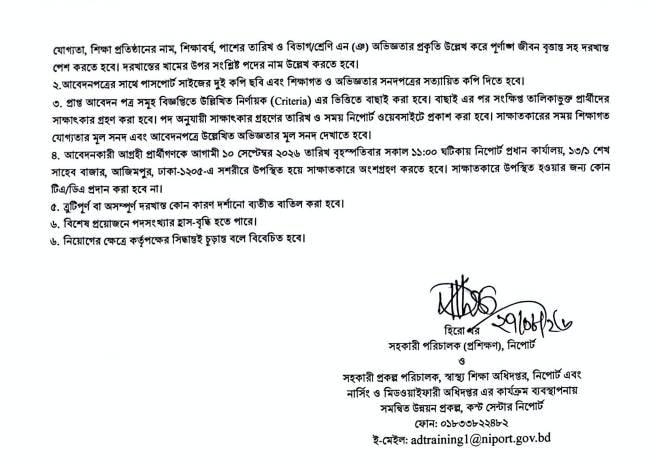 যোগ্যতা, শিক্ষা প্রতিষ্ঠানের নাম, শিক্ষাবর্ষ, পাশের তারিখ ও বিভাগ/শ্রেণি এন (ঞ) অভিজ্ঞতার প্রকৃতি উল্লেখ করে পূর্ণাঙ্গ জীবন বৃত্তান্ত সহ দরখাস্ত
পেশ করতে হবে। দরখাস্তের খামের উপর সংশ্লিষ্ট পদের নাম উল্লেখ করতে হবে।
২.আবেদনপত্রের সাথে পাসপোর্ট সাইজের দুই কপি ছবি এবং শিক্ষাগত ও অভিজ্ঞতার সনদপত্রের সত্যায়িত কপি দিতে হবে।
৩. প্রাপ্ত আবেদন পত্র সমূহ বিজ্ঞপ্তিতে উল্লিখিত নির্ণায়ক (Criteria) এর ভিত্তিতে বাছাই করা হবে। বাছাই এর পর সংক্ষিপ্ত তালিকাভুক্ত প্রার্থীদের
সাক্ষাৎকার গ্রহণ করা হবে। পদ অনুযায়ী সাক্ষাৎকার গ্রহণের তারিখ ও সময় নিপোর্ট ওয়েবসাইটে প্রকাশ করা হবে। সাক্ষাতকারের সময় শিক্ষাগত
যোগ্যতার মূল সনদ এবং আবেদনপত্রে উল্লেখিত অভিজ্ঞতার মূল সনদ দেখাতে হবে।
৪. আবেদনকারী আগ্রহী প্রার্থীগণকে আগামী ১০ সেপ্টেম্বর ২০২৬ তারিখ বৃহস্পতিবার সকাল ১১:০০ ঘটিকায় নিপোর্ট প্রধান কার্যালয়, ১৩/১ শেখ
সাহেব বাজার, আজিমপুর, ঢাকা-১২০৫-এ সশরীরে উপস্থিত হয়ে সাক্ষাতকারে অংশগ্রহণ করতে হবে। সাক্ষাতকারে উপস্থিত হওয়ার জন্য কোন
টিএ/ডিএ প্রদান করা হবে না।
৫. ত্রুটিপূর্ণ বা অসম্পূর্ণ দরখাস্ত কোন কারণ দর্শানো ব্যতীত বাতিল করা হবে।
৬. বিশেষ প্রয়োজনে পদসংখ্যার হ্রাস-বৃদ্ধি হতে পারে।
৬. নিয়োগের ক্ষেত্রে কর্তৃপক্ষের সিদ্ধান্তই চূড়ান্ত বলে বিবেচিত হবে।
২৭/০৮/২৬
সহকারী পরিচালক (প্রশিক্ষণ), নিপোর্ট
ও
সহকারী প্রকল্প পরিচালক, স্বাস্থ্য শিক্ষা অধিদপ্তর, নিপোর্ট এবং
নার্সিং ও মিডওয়াইফারী অধিদপ্তর এর কার্যক্রম ব্যবস্থাপনায়
সমন্বিত উন্নয়ন প্রকল্প, কস্ট সেন্টার নিপোর্ট
ফোন: ০১৮৩৩৮২২৪৮২
ই-মেইল: adtraining1@niport.gov.bd